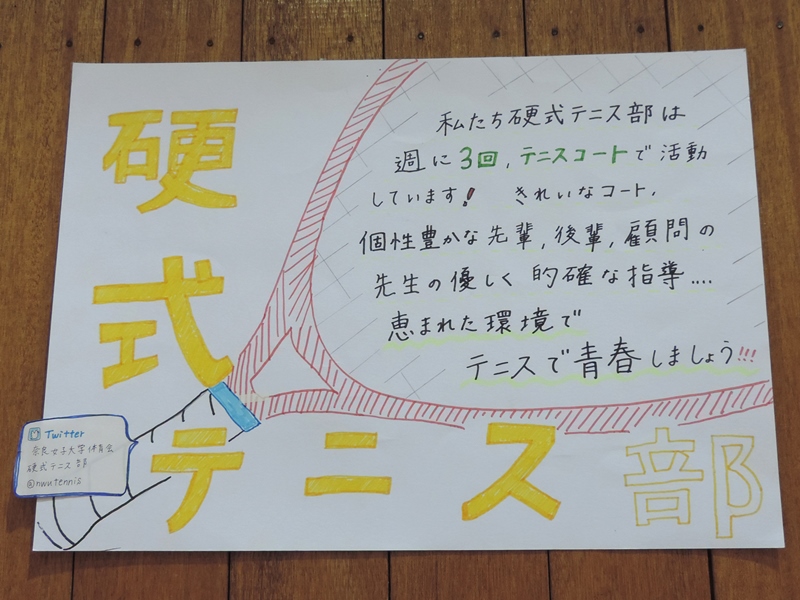 硬式
テニス部
私たち硬式テニス部は
週に3回,テニスコートで活動
しています! きれいなコート,
個性豊かな先輩,後輩,顧問の
先生の優しく的確な指導....
恵まれた環境で
テニスで青春しましょう!!!
Twitter
奈良女子大学体育会
硬式テニス部
@nwutennis